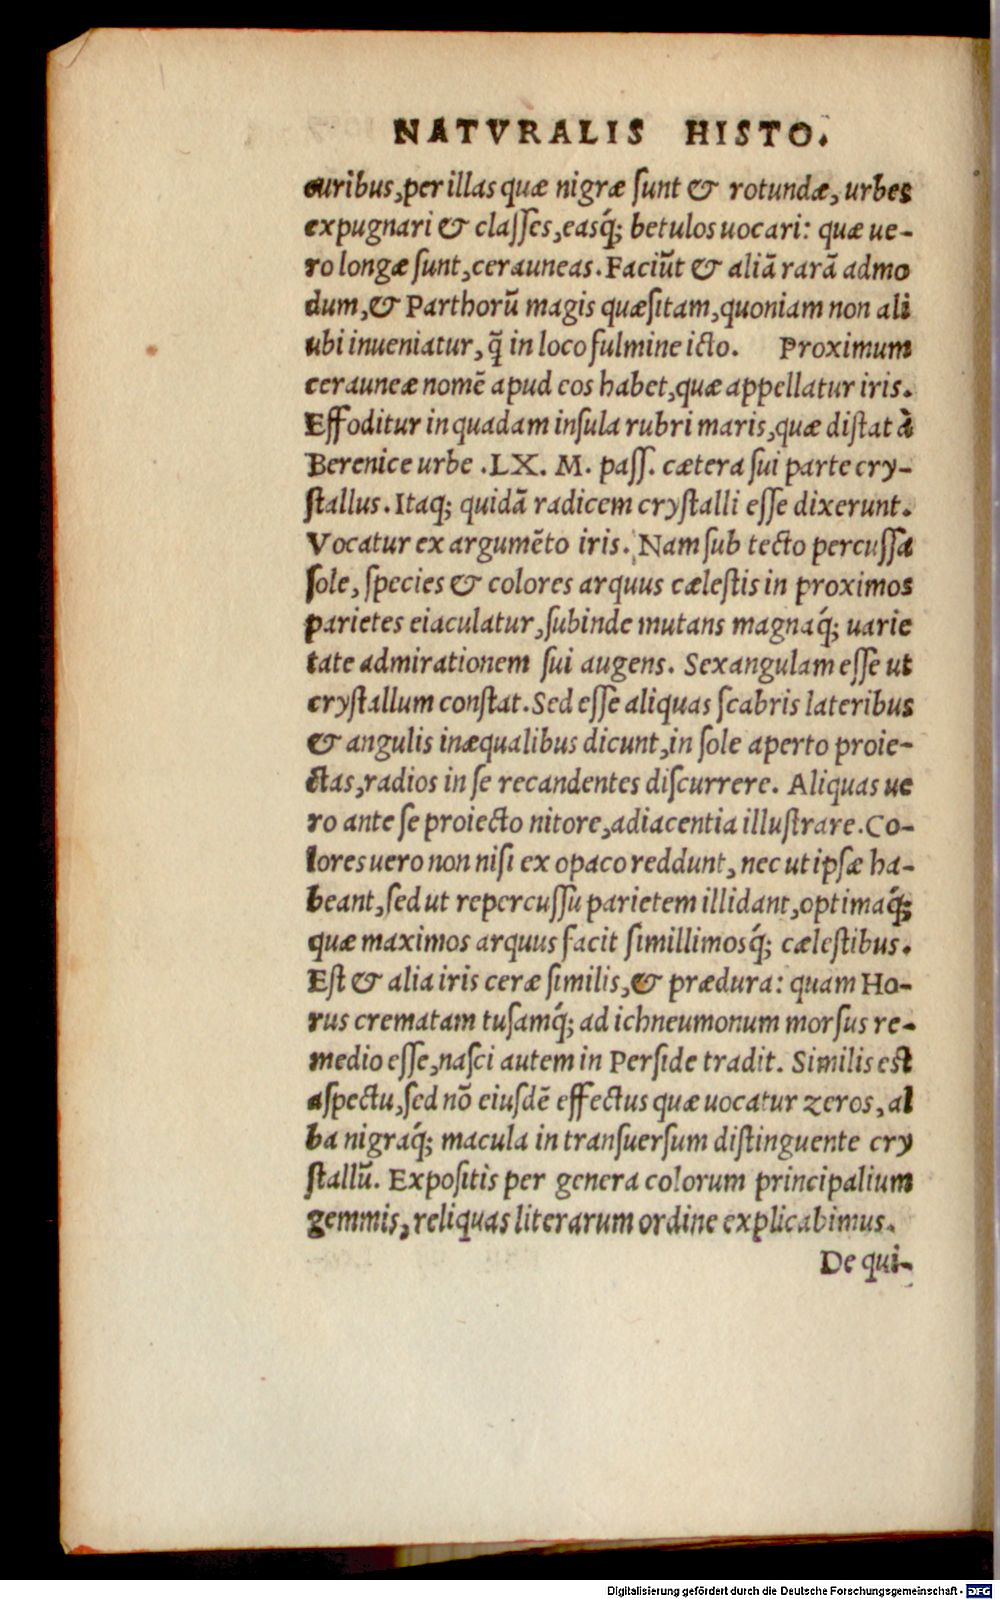 NATVRALIS HISTO.
curibus, per illas quæ nigræ ſunt & rotundæ, urbes
expugnari & claſſes, easq́; betulos uocari: quæ ue-
ro longæ ſunt, cerauneas. Faciūt & aliā rarā admo
dum, & Parthorū magis quæſitam, quoniam non ali
ubi inueniatur, q̄ in loco fulmine icto. Proximum
cerauneæ nomē apud eos habet, quæ appellatur iris.
Effoditur in quadam inſula rubri maris, quæ diſtat à
Berenice urbe .LX. M. paſſ. cætera ſui parte cry-
ſtallus. Itaq; quidā radicem cryſtalli eſſe dixerunt.
Vocatur ex argumēto iris. Nam ſub tecto percuſſa
ſole, ſpecies & colores arquus cæleſtis in proximos
parietes eiaculatur, ſubinde mutans magnaq́; uarie
tate admirationem ſui augens. Sexangulam eſſe ut
cryſtallum conſtat. Sed eſſe aliquas ſcabris lateribus
& angulis inæqualibus dicunt, in ſole aperto proie-
ctas, radios in ſe recandentes diſcurrere. Aliquas ue
ro ante ſe proiecto nitore, adiacentia illuſtrare. Co-
lores uero non niſi ex opaco reddunt, nec ut ipſæ ha-
beant, ſed ut repercuſſu parietem illidant, optimaq́;
quæ maximos arquus facit ſimillimosq́; cæleſtibus.
Eſt & alia iris ceræ ſimilis, & prædura: quam Ho-
rus crematam tuſamq́; ad ichneumonum morſus re-
medio eſſe, naſci autem in Perſide tradit. Similis eſt
aſpectu, ſed nō eiuſdē effectus quæ uocatur zeros, al
ba nigraq́; macula in tranſuerſum diſtinguente cry
ſtallū. Expoſitis per genera colorum principalium
gemmis, reliquas literarum ordine explicabimus.
De qui-
Digitalisierung gefördert durch die Deutsche Forschungsgemeinschaft - DFG